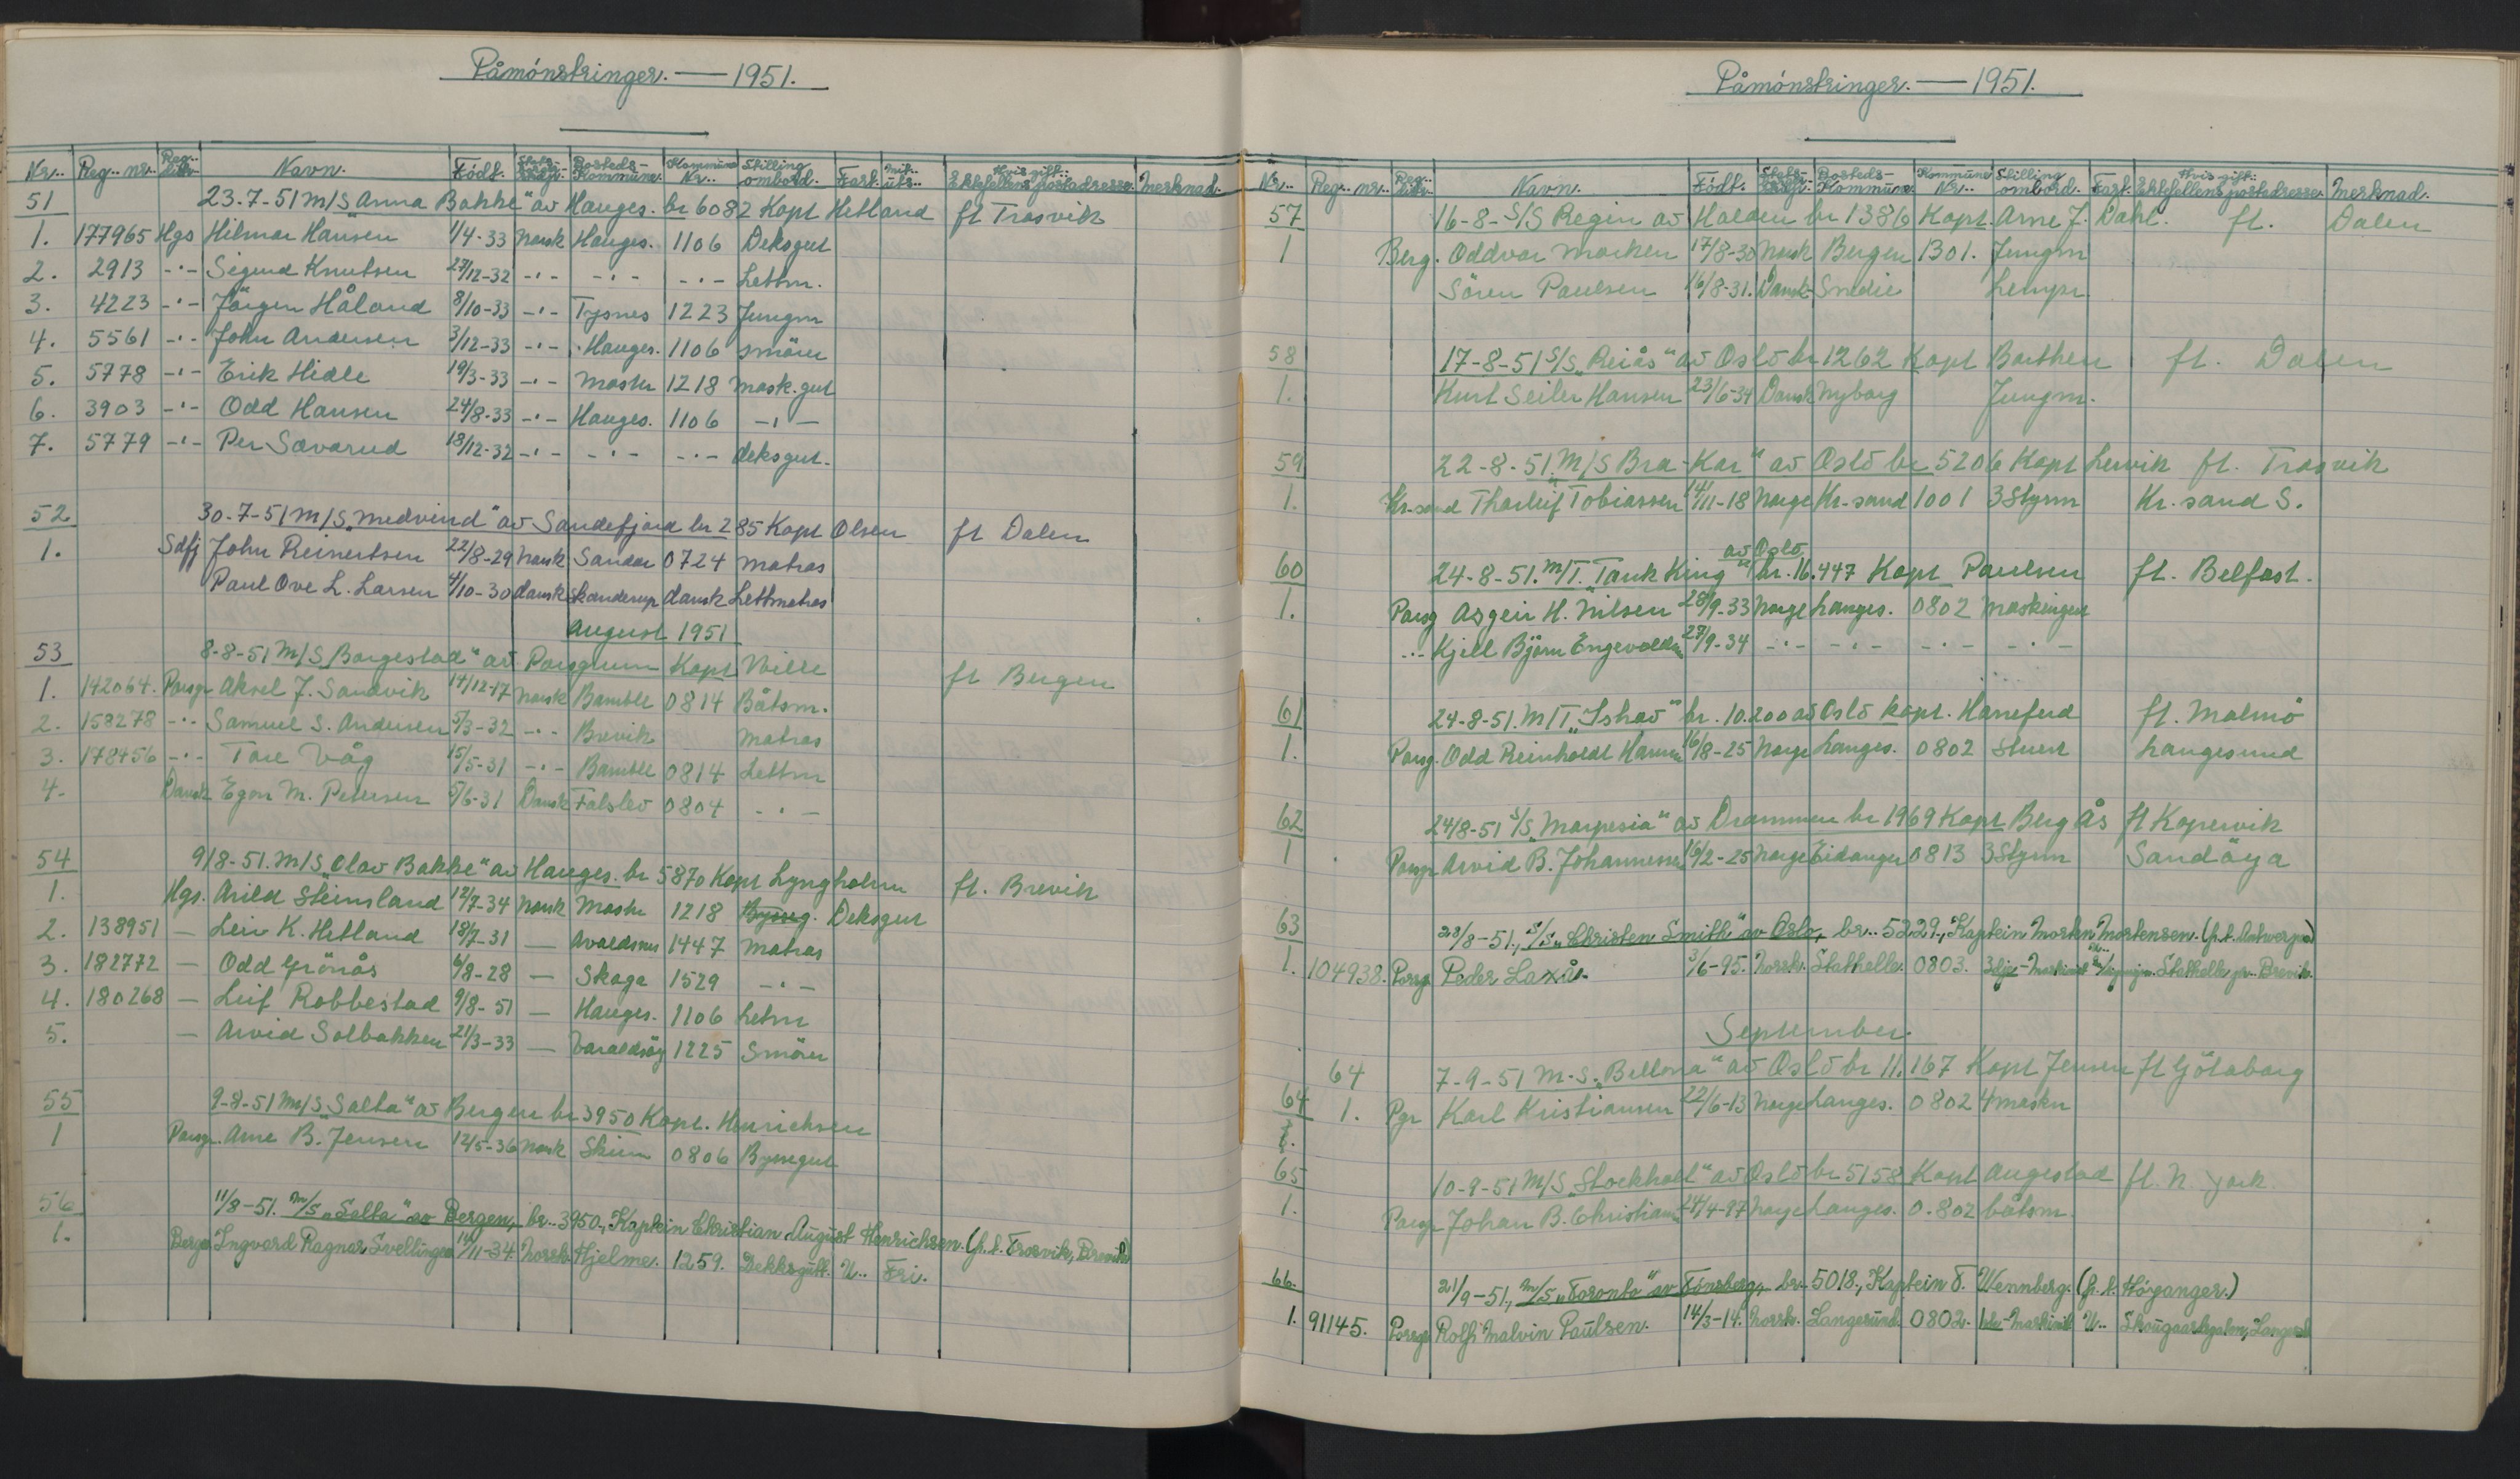 Påmønstringer. — 1951.
Nr.. Reg.. nr.. Reg.. distr. Navn. Født. Stats- borgr. Bosteds- Kommune. Kommune Nr.. Stilling ombord. Fart. Hvis gift: Ektefellens postadresse. Merknad.
51 23-7-51 M/S Anna Bakke" av Hauges. br 6082 Kapt Hetland ft Trosvik
1. 177965 Hgs Hilmar Hansen 1/4-33 Norsk Hauges. 1106 Deksgut
2. 2913 -"- Sigurd Knutsen 27/12-32 -"- -"- -"- Lettm.
3. 4223 -"- Jörgen Håland 8/10-33 -"- Tysnes 1223 Jungm
4. 5561 -"- John Andersen 3/12-33 -"- Hauges. 1106 Smører
5. 5778 -"- Erik Hidle 19/3-33 -"- Moster 1218 mask.gut
6. 3903 -"- Odd Hansen 24/8-33 -"- Hauges. 1106 -"-
7. 5779 -"- Per Sævarud 18/12-32 -"- -"- -"- deksgut.
52 30-7-51 M/S „Medvind" av Sandefjord br 285 Kapt Olsen ft Dalen
1. Sdfj John Reinertsen 22/8-29 Norsk Sandar 0724 matros
Paul Ove L. Larsen 4/10-30 dansk Skanderup dansk Lettmatros
August 1951
53 8-8-51 M/S „Borgestad" av Porsgrunn Kapt Wille ft Bergen
1. 142064. Porsgr Aksel J. Sandvik 14/12-17 Norsk Bamble 0814 Båtsm.
2. 158278 -"- Samuel S. Andersen 5/3-32 -"- Brevik matros
3. 178456 -"- Tore Våg 15/5-31 -"- Bamble 0814 Lettm
4. Dansk Egon M. Petersen 5/6-31 Dansk Falslev 0804 -"-
54 9/8-51. M/S „Olav Bakke" av Hauges. br 5870 Kapt Lyngholm ft. Brevik
1. Hgs. Arild Steinsland 12/7-34 Norsk Moster 1218 Bysseg. Deksgut
2. 138951 — Leiv K. Hetland 18/7-31 — Avaldsnes 1447 matros
3. 182772 — Odd Grönås 6/8-28 — Skoge 1529 -"-
4. 180268 — Leif Robbestad 9/8-51 — Hauges. 1106 Letm
5. — Arvid Solbakken 21/3-33 — Varaldsöy 1225 Smører
55 9-8-51 M/S „Salta" av Bergen br 3950 Kapt. Henrichsen
1 Porsgr. Arne B. Jensen 12/5-36 Norsk Skien 0806 Byssegut
56 11/8-51. M/S „Salta" av Bergen, br.. 3950., Kaptein Christian August Henrichsen. (p.t. Trosvik, Brevik)
1. Bergen Ingvard Ragnar Svellingen 14/11-34. Norsk Hjelme. 1259. Dekksgutt. U.. Fri.
Påmønstringer. — 1951.
Nr.. Reg.. nr.. Reg.. distr. Navn. Født. Stats- borgr. Bosteds- Kommune. Kommune Nr.. Stilling ombord. Fart. Hvis gift: Ektefellens postadresse. Merknad.
57 16-8- S/S Regin av Halden br 1386 Kapt. Arne J. Dahl. ft. Dalen
1 Berg. Oddvar Morken 17/8-30 Norsk Bergen 1301. Jungm
Sören Paulsen 16/8-31. Dansk Snedie Lempr.
58 17-8-51 S/S „Reiås" av Oslo br 1262 Kapt Barthen ft. Dalen
1. Kurt Seiler Hansen 23/6-34 Dansk Nyborg Jungm.
59 22-8-51. M/S Bra-Kar" av Oslo br 5206 Kapt Lervik ft. Trosvik
1. Kr.sand Thorleif Tobiassen 14/11-18 Norge Kr.sand 1001 3Styrm Kr. sand S.
60 24-8-51. M/T. „Tank King" av Oslo br. 16.447 Kapt Paulsen ft. Belfast.
1. Porsg Asgeir H. Nilsen 28/9-33 Norge Langes. 0802 Maskingut
-"- Kjell Bjørn Engevoldsen 27/9-34 -"- -"- -"- -"-
61 24-8-51. M/T „Ishav" br. 10.200 av Oslo kapt. Haneferd ft. Malmö
1. Porsg. Odd Reinholdt Hansen 16/8-25 Norge Langes. 0802 Stuert Langesund
62 24/8-51 S/S „Marpesia" av Drammen br 1969 Kapt Berg Ås ft Kopervik
1 Porsgr Arvid B. Johannessen 16/2-25 Norge Eidanger 0813 3Styrm Sandöya
63 28/8-51., S/S „Christen Smith" av Oslo, br.. 5229., Kaptein Morten Mortensen. (p.t. Antwerpen)
1. 104938. Porsgr Peder Laxå. 3/6-95. Norsk. Stathelle. 0803. 3dje-Maskinist Stathelle pr. Brevik.
September.
64 7-9-51 M.S. „Bellona" av Oslo br 11.167 Kapt Jensen ft Götaborg
64 1. Pgr Karl Kristiansen 22/6-13 Norge Langes. 0802 4maskn
65 10-9-51 M/S „Stockholt" av Oslo br 5158 Kapt Augestad ft. N York.
1. Porsgr Johan B. Christians 24/4-97 Norge Langes. 0.802 båtsm.
66. 21/9-51., M/S „Toronto" av Tønsberg, br. 5018., Kaptein T. Wennberg. (p.t. Höyanger.)
1. 91145. Porsgr Rolf Malvin Paulsen. 14/3-14. Norsk. Langesund. 0802. 1ste-Maskinist U..